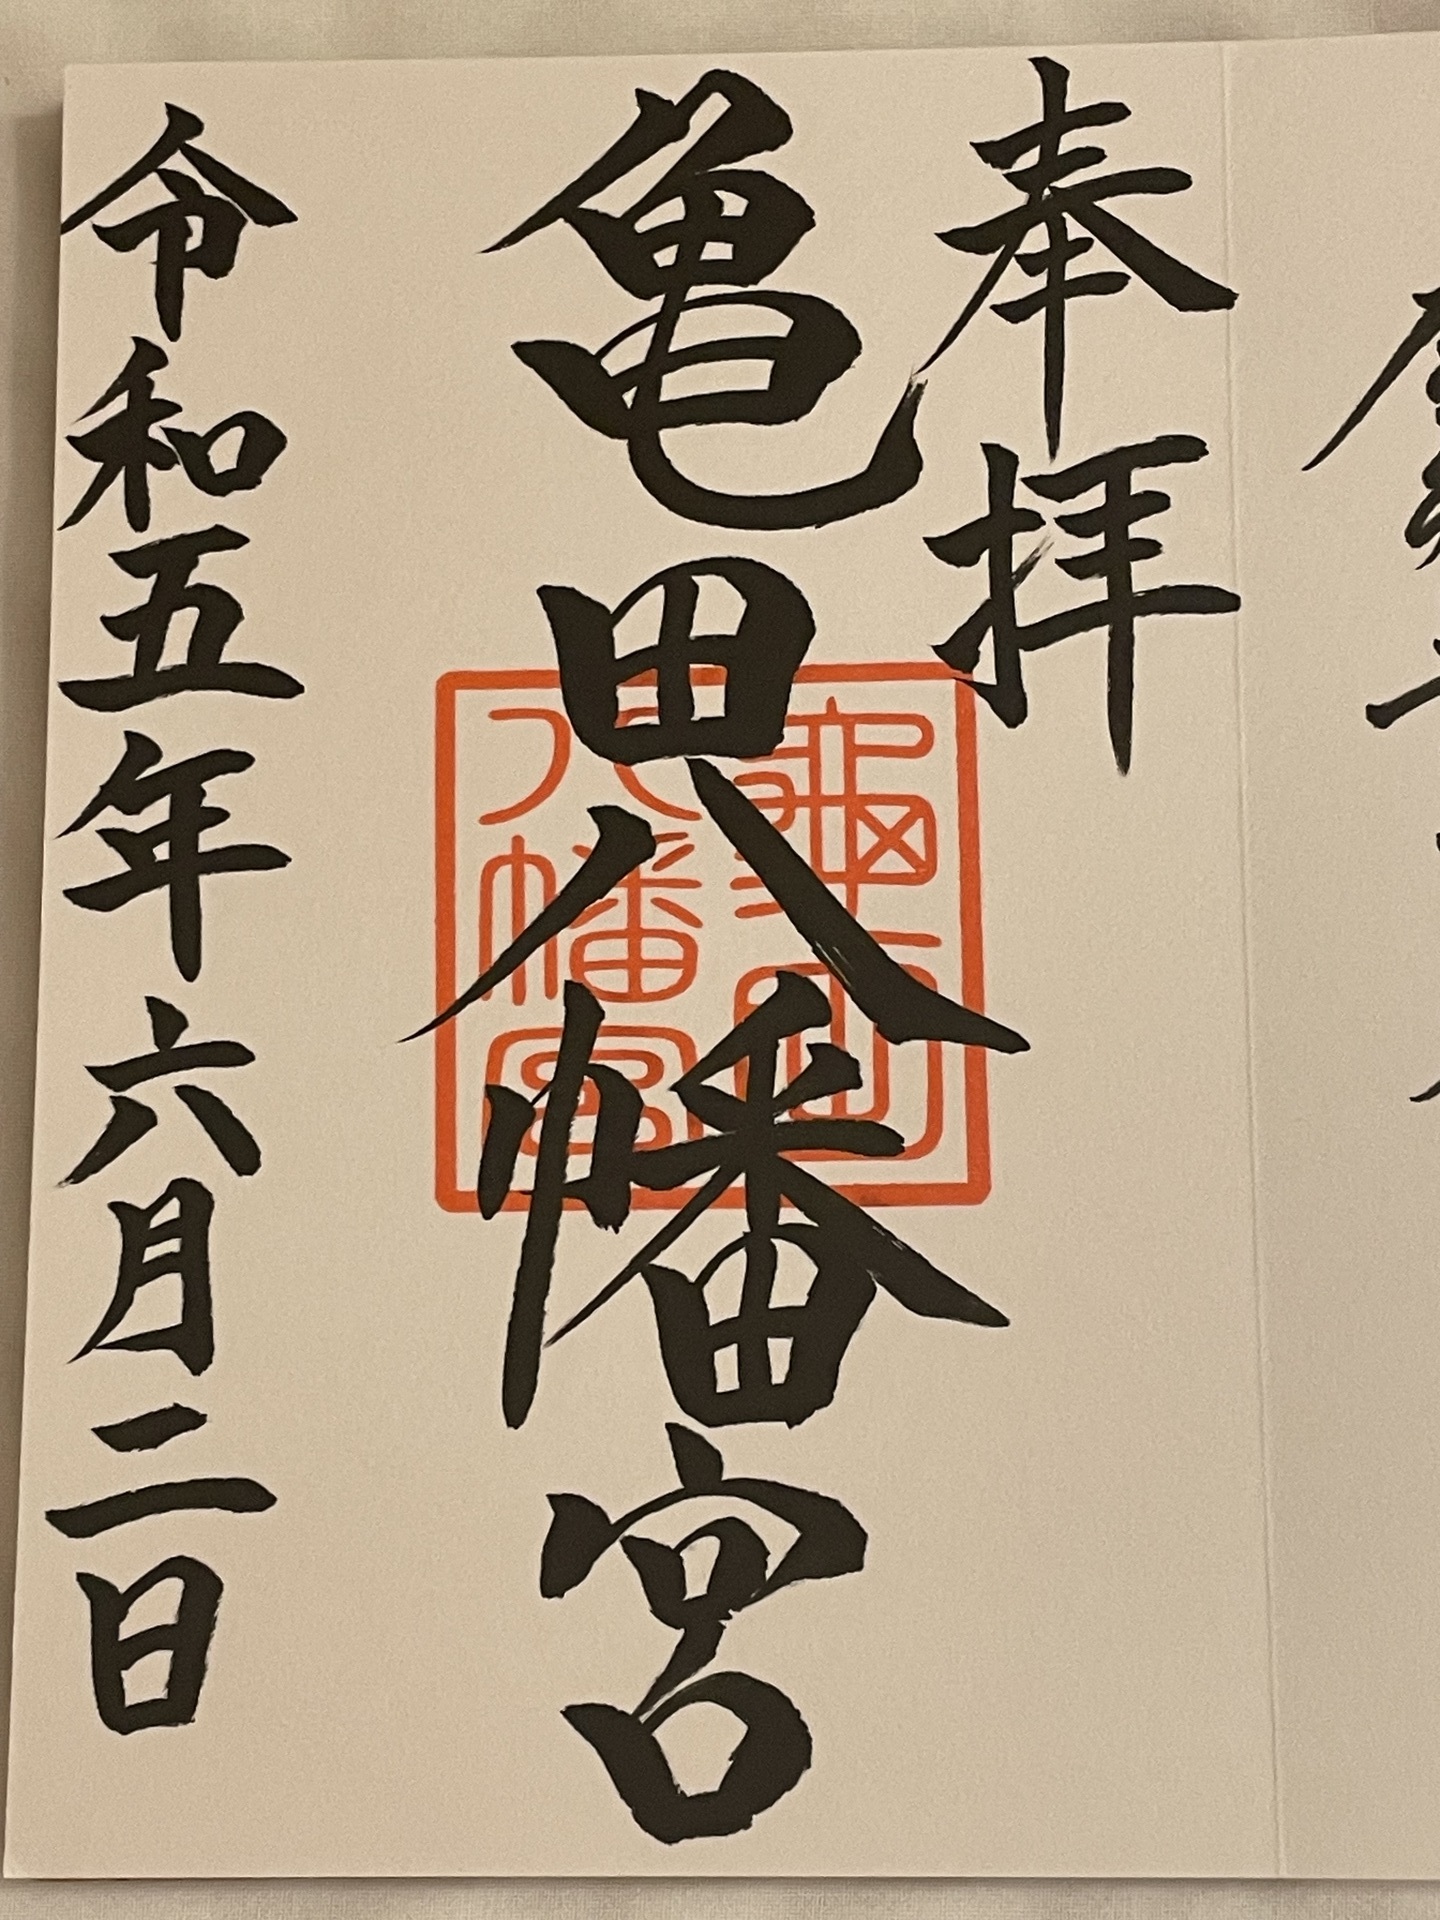 奉拝
亀田八幡宮
龜田
八幡宮
令和五年六月二日